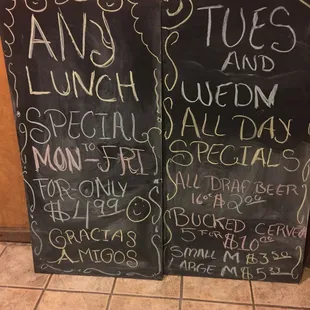 ANY
LUNCH
SPECIAL
MON-TO-FRI
FOR-ONLY
$4.99
GRACIAS
AMIGOS
TUES
AND
WEDN
ALL DAY
SPECIALS
ALL DRAF BEER
16oz $2.00
BUCKED CERVEZ
5 FOR $10.00
SMALL M $3.50
LARGE M $5.50